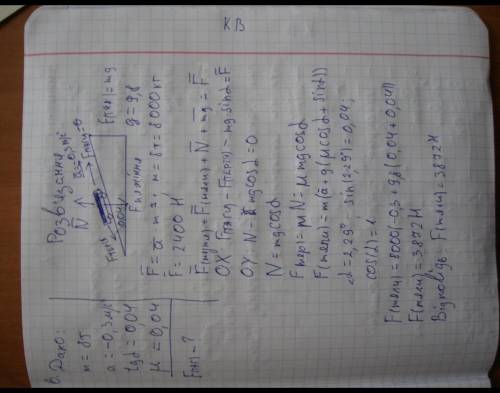 КВ
6. Дано:
m = 8т
a = -0,3 м/с
tg α = 0,04
μ = 0,04
F(тяг) - ?
Розв'язання
N
0,04
F(тяж) = mg
g = 9,8
F̄ = a · m ; m = 8т = 8000 кг
F̄ = 2400 Н
F̄(тертя) + F̄(тяги) + N̄ + m̄g = F̄
OX F(тяги) - F(тертя) - mg sinα = F̄
OY N - mg cosα = 0
N = mg cosα
F(тер) = μN = μ mg cosα
F(тяги) = m(a + g(μ cosα + sinα))
α = 2,29° sin(2,29°) = 0,04;
cos(α) = 1
F(тяги) = 8000(-0,3 + 9,8(0,04 + 0,04))
F(тяги) = 3872 Н
Відповідь F(тяги) = 3872 Н